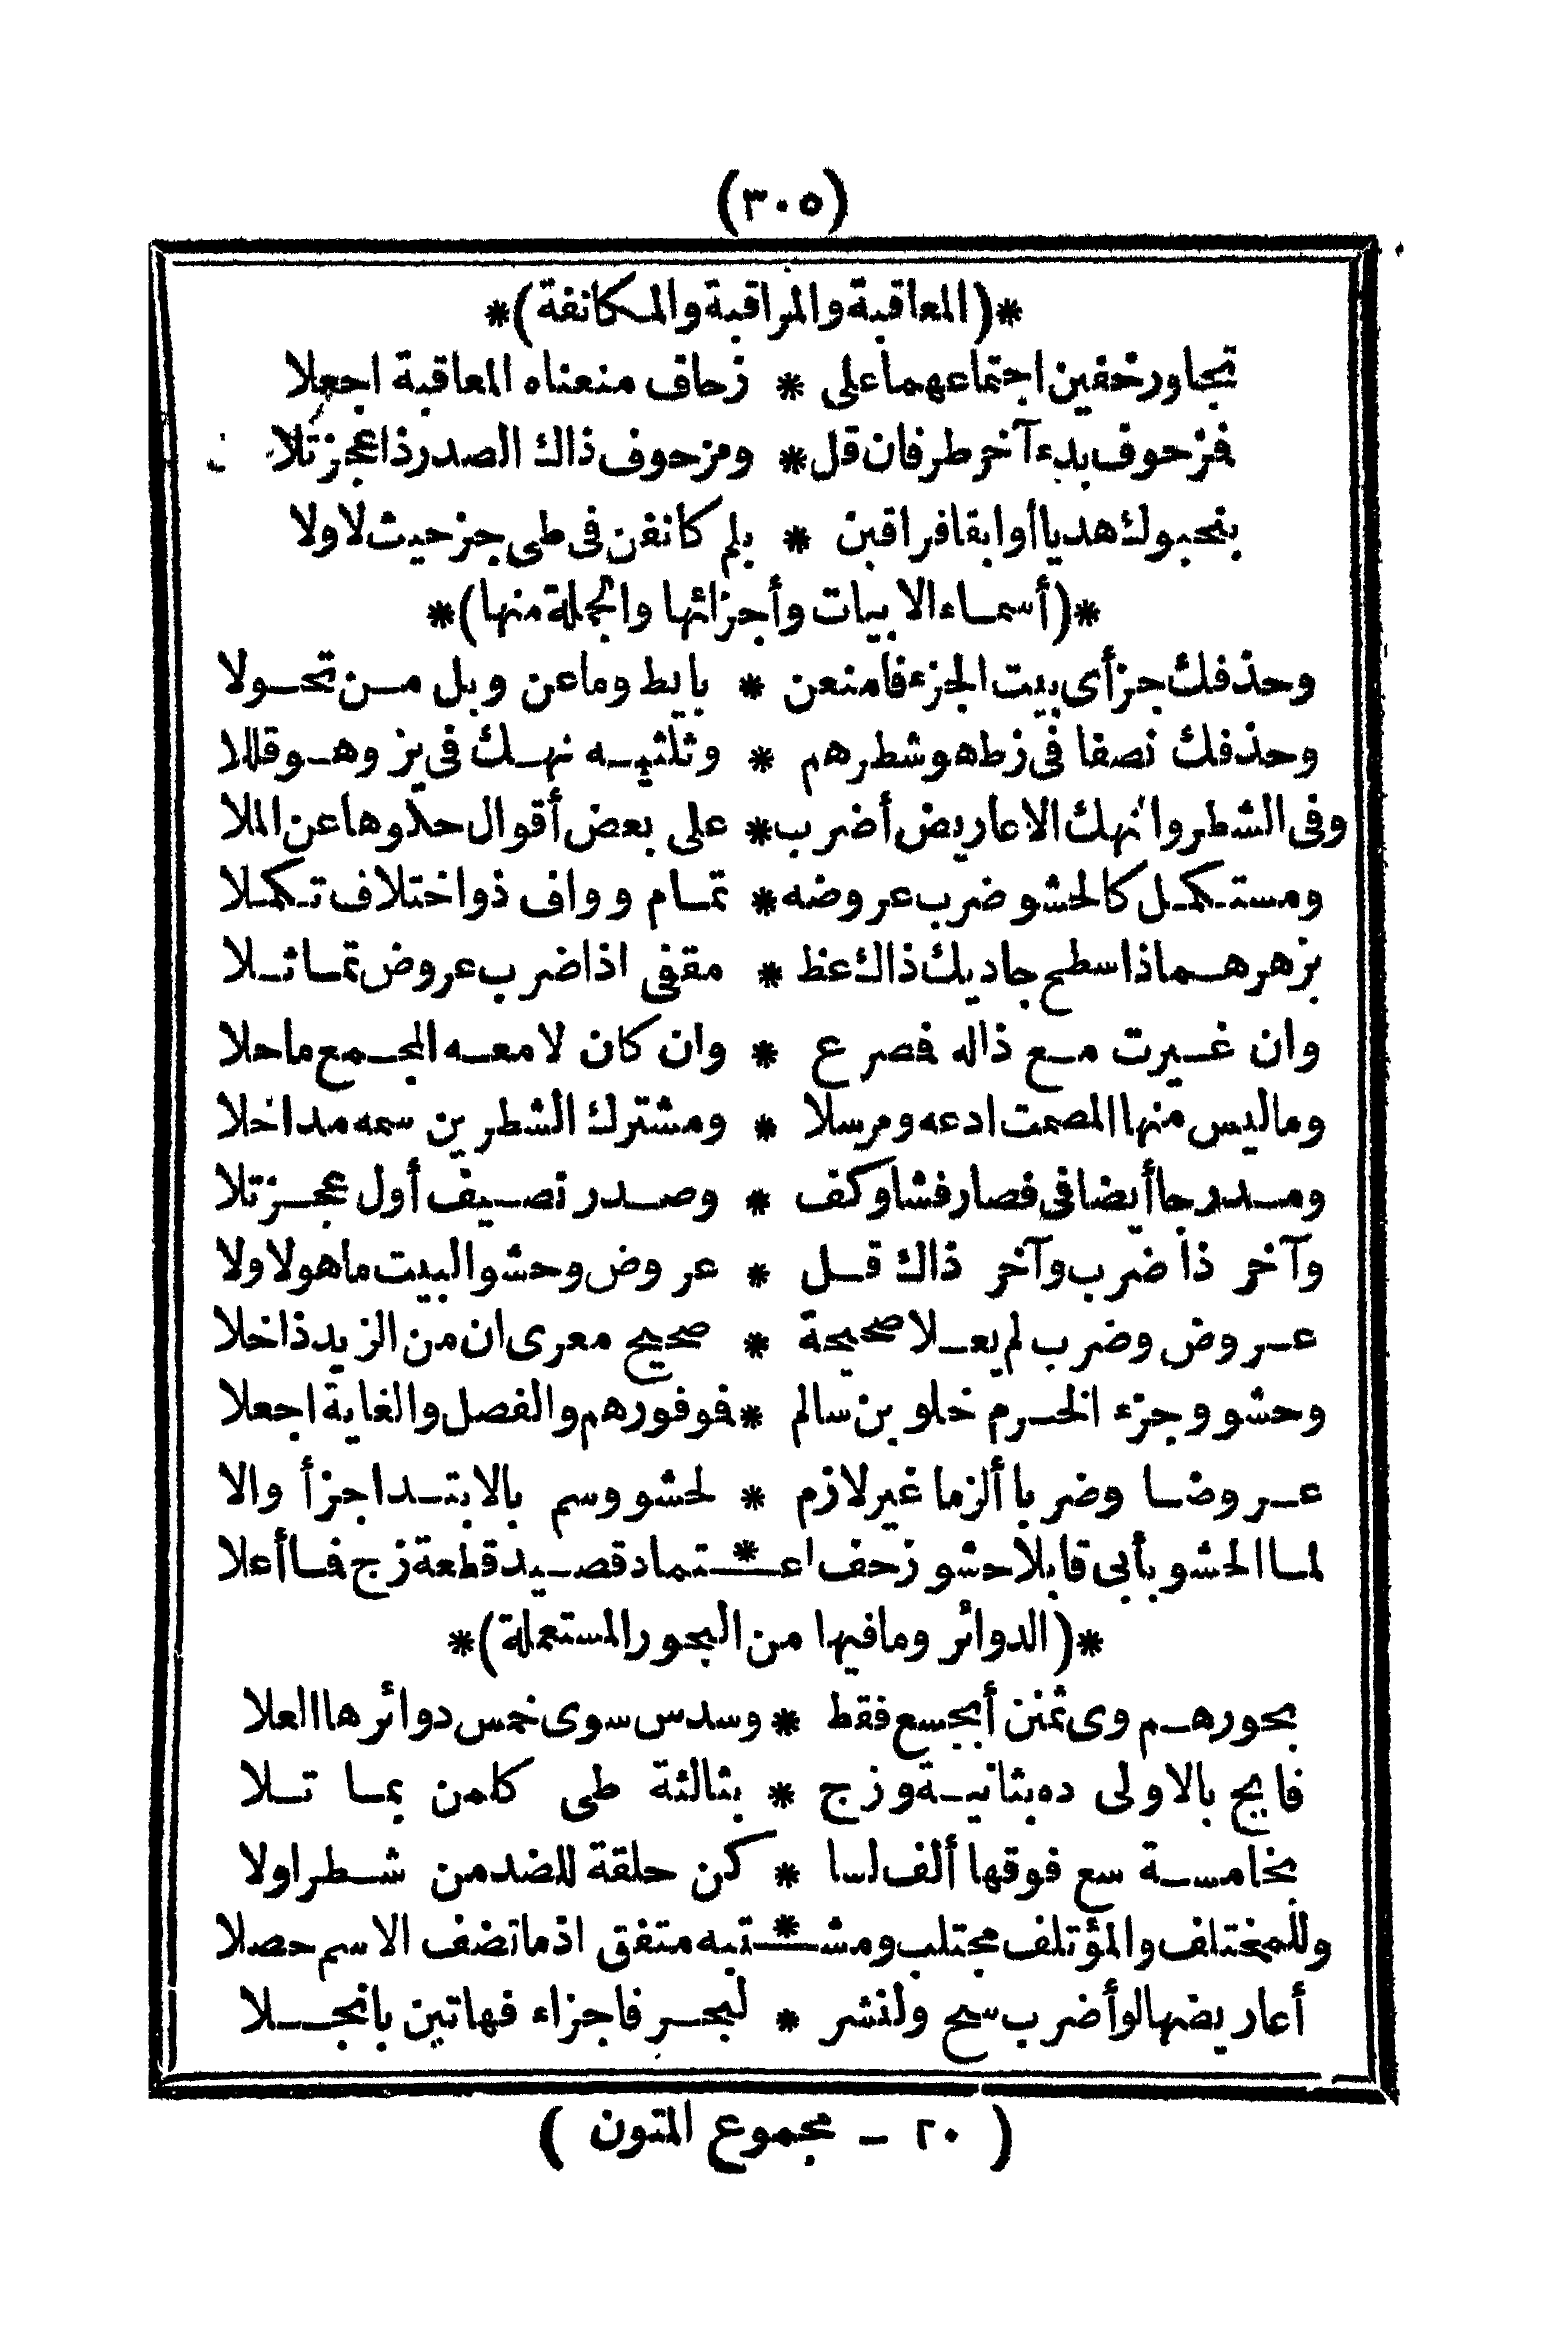 (٣٠٥)
*(المعاقبة والمراقبة والمكانفة)*
تجاور خفين اجتماعهما على * زحاف منعناه المعاقبة اجعلا
فمزحوف بدء آخر طرفان قل * ومزحوف ذاك الصدر ذا عجز تلا
بنحبولك هديا أوابقا فراقبن * بلم كانفن فى طى جز حيث لا ولا
*(أسماء الابيات وأجزائها والجملة منها)*
وحذفك جزأى بيت الجزء فامنعن * بابط وماعن وبل من تحولا
وحذفك نصفا فى زطه وشطرهم * وثلثيه نهك فى يز وهو قللا
وفى الشطر وانهك الاعاريض أضرب * على بعض أقوال حذوها عن الملا
ومستكمل كالحشو ضرب عروضه * تمام وواف ذو اختلاف تكملا
بزهر هما ذا سطح جاديك ذاك عظ * مقفى اذا ضرب عروض تماثلا
وان غيرت مع ذاله فصرع * وان كان لا معه المجمع ماحلا
وماليس منها المصمت ادعه ومرسلا * ومشترك الشطرين سمه مداخلا
ومدرجا أيضا فى فصار فشاوكف * وصدر نصيف أول عجز تلا
وآخر ذا ضرب وآخر ذاك قل * عروض وحشو البيت ماهو لا ولا
عروض وضرب لم يعلا صحيحة * صحيح معرى ان من الزيد ذا خلا
وحشو وجزء الخرم خلو بن سالم * فموفورهم والفصل والغاية اجعلا
عروضا وضربا ألزما غير لازم * لحشو وسم بالابتدا جزأ والا
لما الحشو يأبى قابلا حشو زحف اعـ*ـتماد قصيد قطعة زج فما أعلا
*(الدوائر ومافيها من البحور المستعملة)*
بحورهم وى ثمنن أبجسع فقط * وسدس سوى خمس دوائرها العلا
فايج بالاولى ده بثانية وزج * بثالثة طى كلمن بما تلا
بخامسة سع فوقها ألف لسا * كن حلقة للضد من شطر اولا
وللمختلف والمؤتلف مجتلب ومشـ*ـتبه متفق اذما تضف الاسم حصلا
أعاريضها لو أضرب سح ولنشر * لبحر فاجزاء فهاتين بانجلا
( ٢٠ - مجموع المتون )